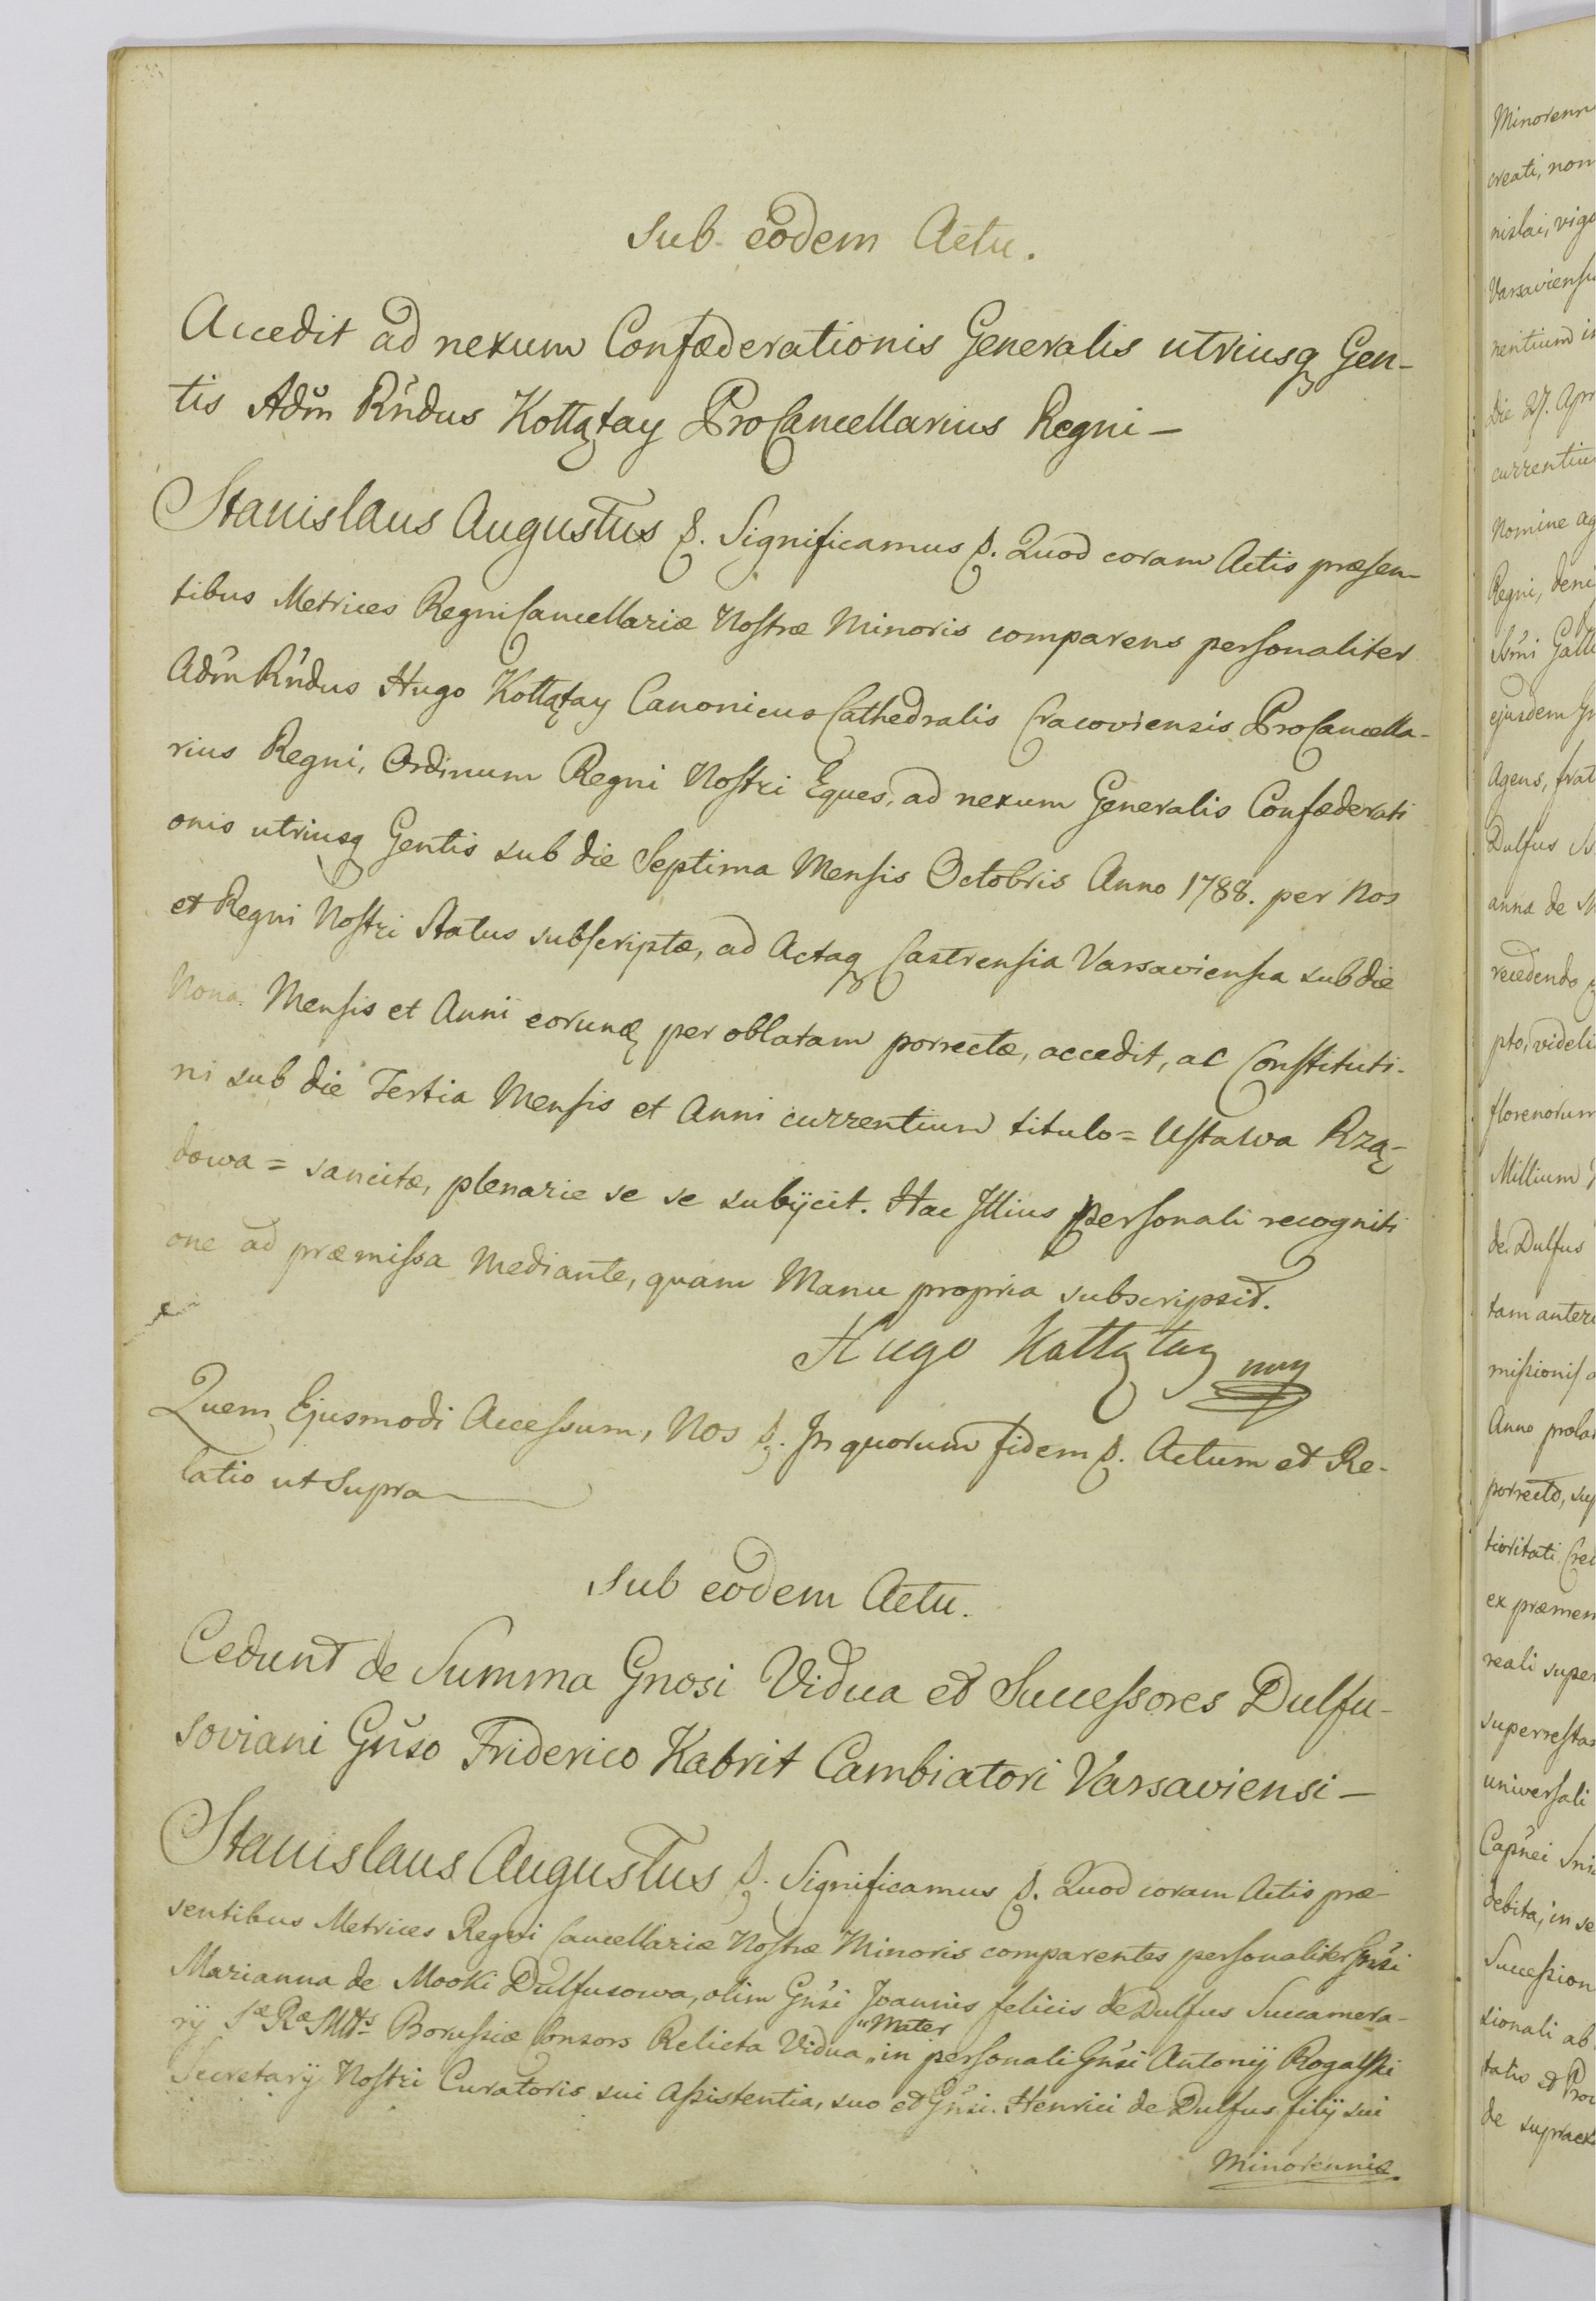 Sub eodem Actu.
Accedit ad nexum Confæderationis Generalis utriusq Gen-
tis Adm̃ Rndus Kołłątay ProCancellarius Regni —
Stanislaus Augustus &. Significamus &. Quod coram Actis præsen-
tibus Metrices Regni Cancellariæ Nostræ Minoris comparens personaliter
Adm̃ Rndus Hugo Kołłątay Canonicus Cathedralis Cracoviensis ProCancella-
rius Regni, Ordinum Regni Nostri Eques, ad nexum Generalis Confæderati
onis utriusq Gentis sub die Septima Mensis Octobris Anno 1788. per Nos
et Regni Nostri Status subscriptæ, ad Actaq Castrensia Varsaviensia sub die
Nona Mensis et Anni eorund per oblatam porrectæ, accedit, ac Constituti-
ni sub die Tertia Mensis et Anni currentium titulo = Ustawa Rzą-
dowa = sancitæ, plenarie se se subijcit. Hac Illius personali recogniti
one ad præmissa mediante, quam Manu propria subscripsit.
Hugo Kołłątay mp
Quem Ejusmodi Accessum, Nos &. In quorum fidem &. Actum et Re-
latio ut Supra
Sub eodem Actu.
Cedunt de Summa Gnosi Vidua et Successores Dulfu-
soviani Gnso Friderico Kabrit Cambiatori Varsaviensi —
Stanislaus Augustus &. Significamus &. Quod coram Actis præ-
sentibus Metrices Regni Cancellariæ Nostræ Minoris comparentes personaliter Gnsi
Marianna de Mooki Dulfusowa, olim Gnsi Joannis felicis de Dulfus Succamera-
rij Sæ Ræ Mttis Borussiæ Consors Relicta Vidua „Mater„ in personali Gnsi Antonij Rogalski
Secretarij Nostri Curatoris sui Assistentia, suo et Gnsi. Henrici de Dulfus filij sui
Minorennis.
Minorenn
creati, nom
nislai, vigo
Varsaviensi
nentium in
die 27. Apr
currentium
Nomine ag
Regni, deni
Issmi Gall
ejusdem
Agens, frat
Dulfus
anna de M
recedendo
pto, videli
florenorum
Millium
de Dulfus
tam anter
missionis
Anno prola
porrecto, sup
tioritati Cre
ex præmen
reali super
superresta
universali
debita, in se
Succession
sionali ab
tatis et Pro
de supraex